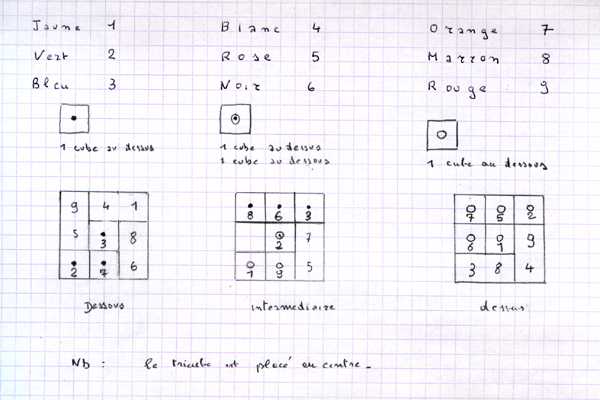 Jaune 1 Blanc 4 Orange 7
Vert 2 Rose 5 Marron 8
Bleu 3 Noir 6 Rouge 9
1 cube au dessus
1 cube au dessus
1 cube au dessous
1 cube au dessous
9 4 1
5 3 8
2 7 6
8 6 3
2 7
1 9 5
7 5 2
6 1 9
3 8 4
Dessous intermediaire dessus
Nb : le tricube est placé au centre.